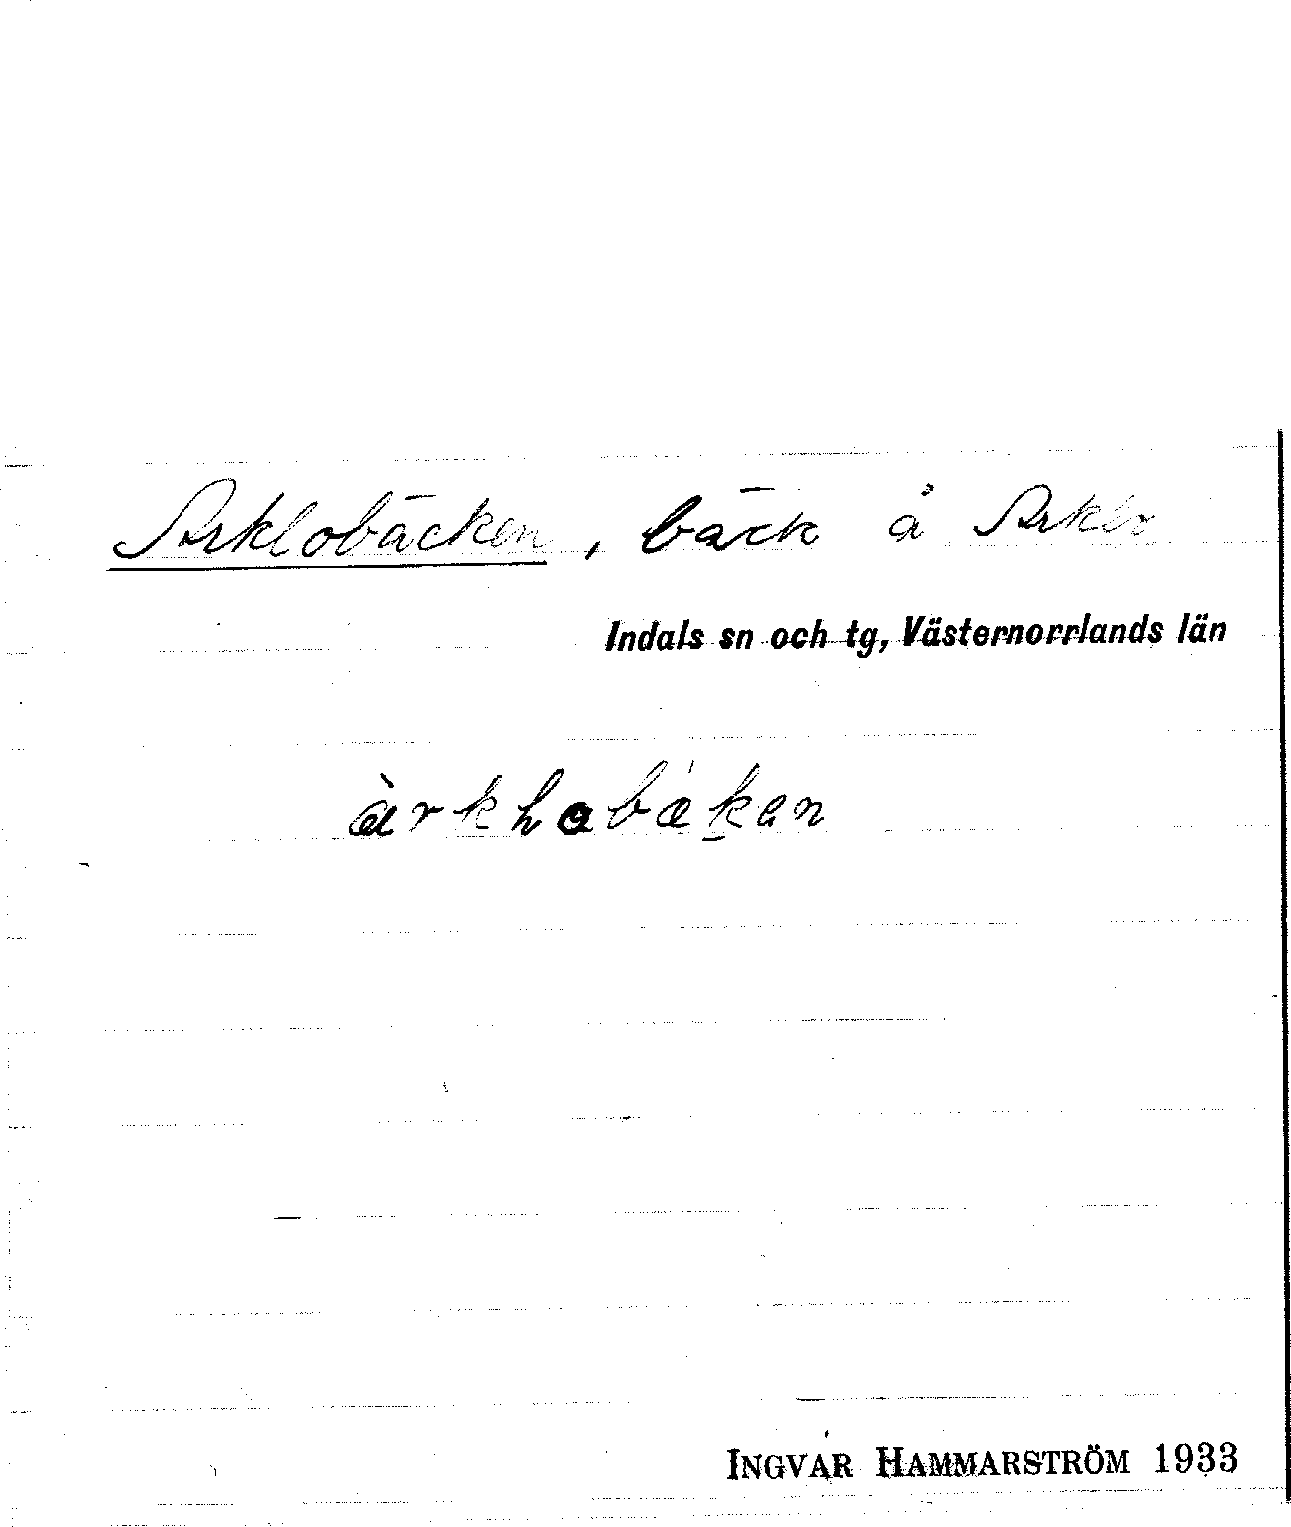 Arklobäcken, bäck å Arklo
Indals sn och tg, Västernorrlands län
àrkhobækan
INGVAR HAMMARSTRÖM 1933